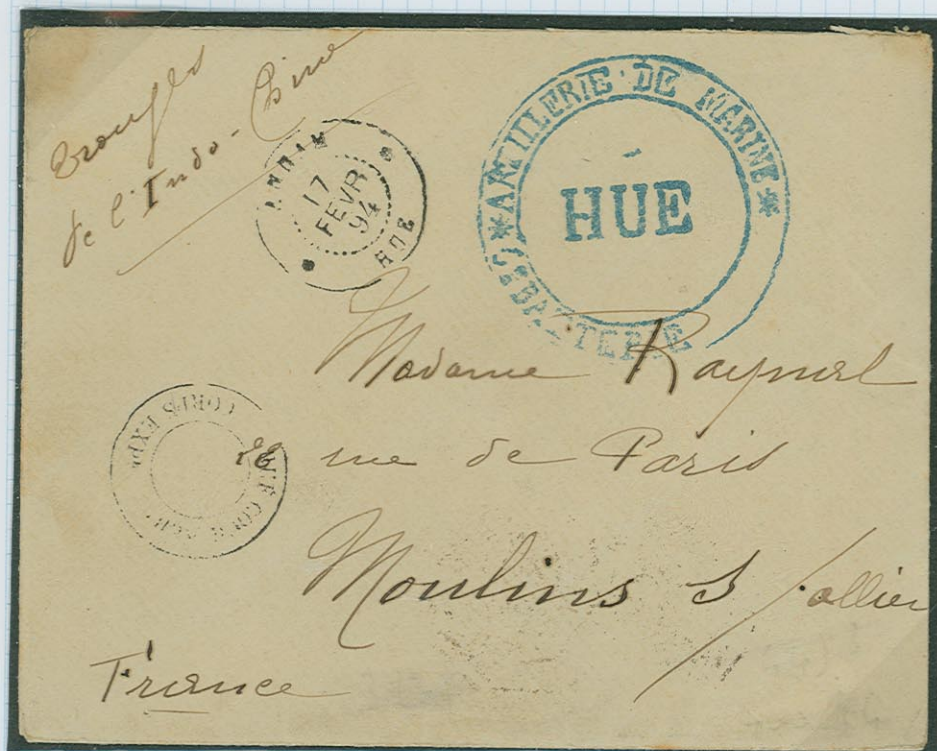 Troupes
de l'Indo-Chine
ANNAM
17
FEVR
94
HUE
*ARTILLERIE DE MARINE*
HUÉ
BATTERIE
CORPS EXP
Madame Raynal
rue de Paris
Moulins S/allier
France